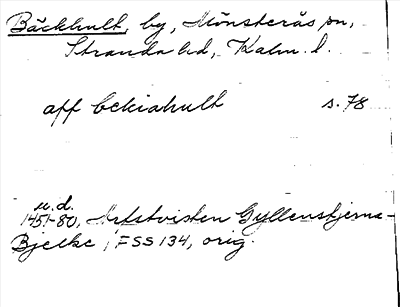 Bäckhult, by, Mönsterås sn,
Stranda hd, Kalm. l.
aff bekiahult s. 78
u.d.
1451-80, Arfstvisten Gyllenstjerna-
Bjelke, FSS 134, orig.